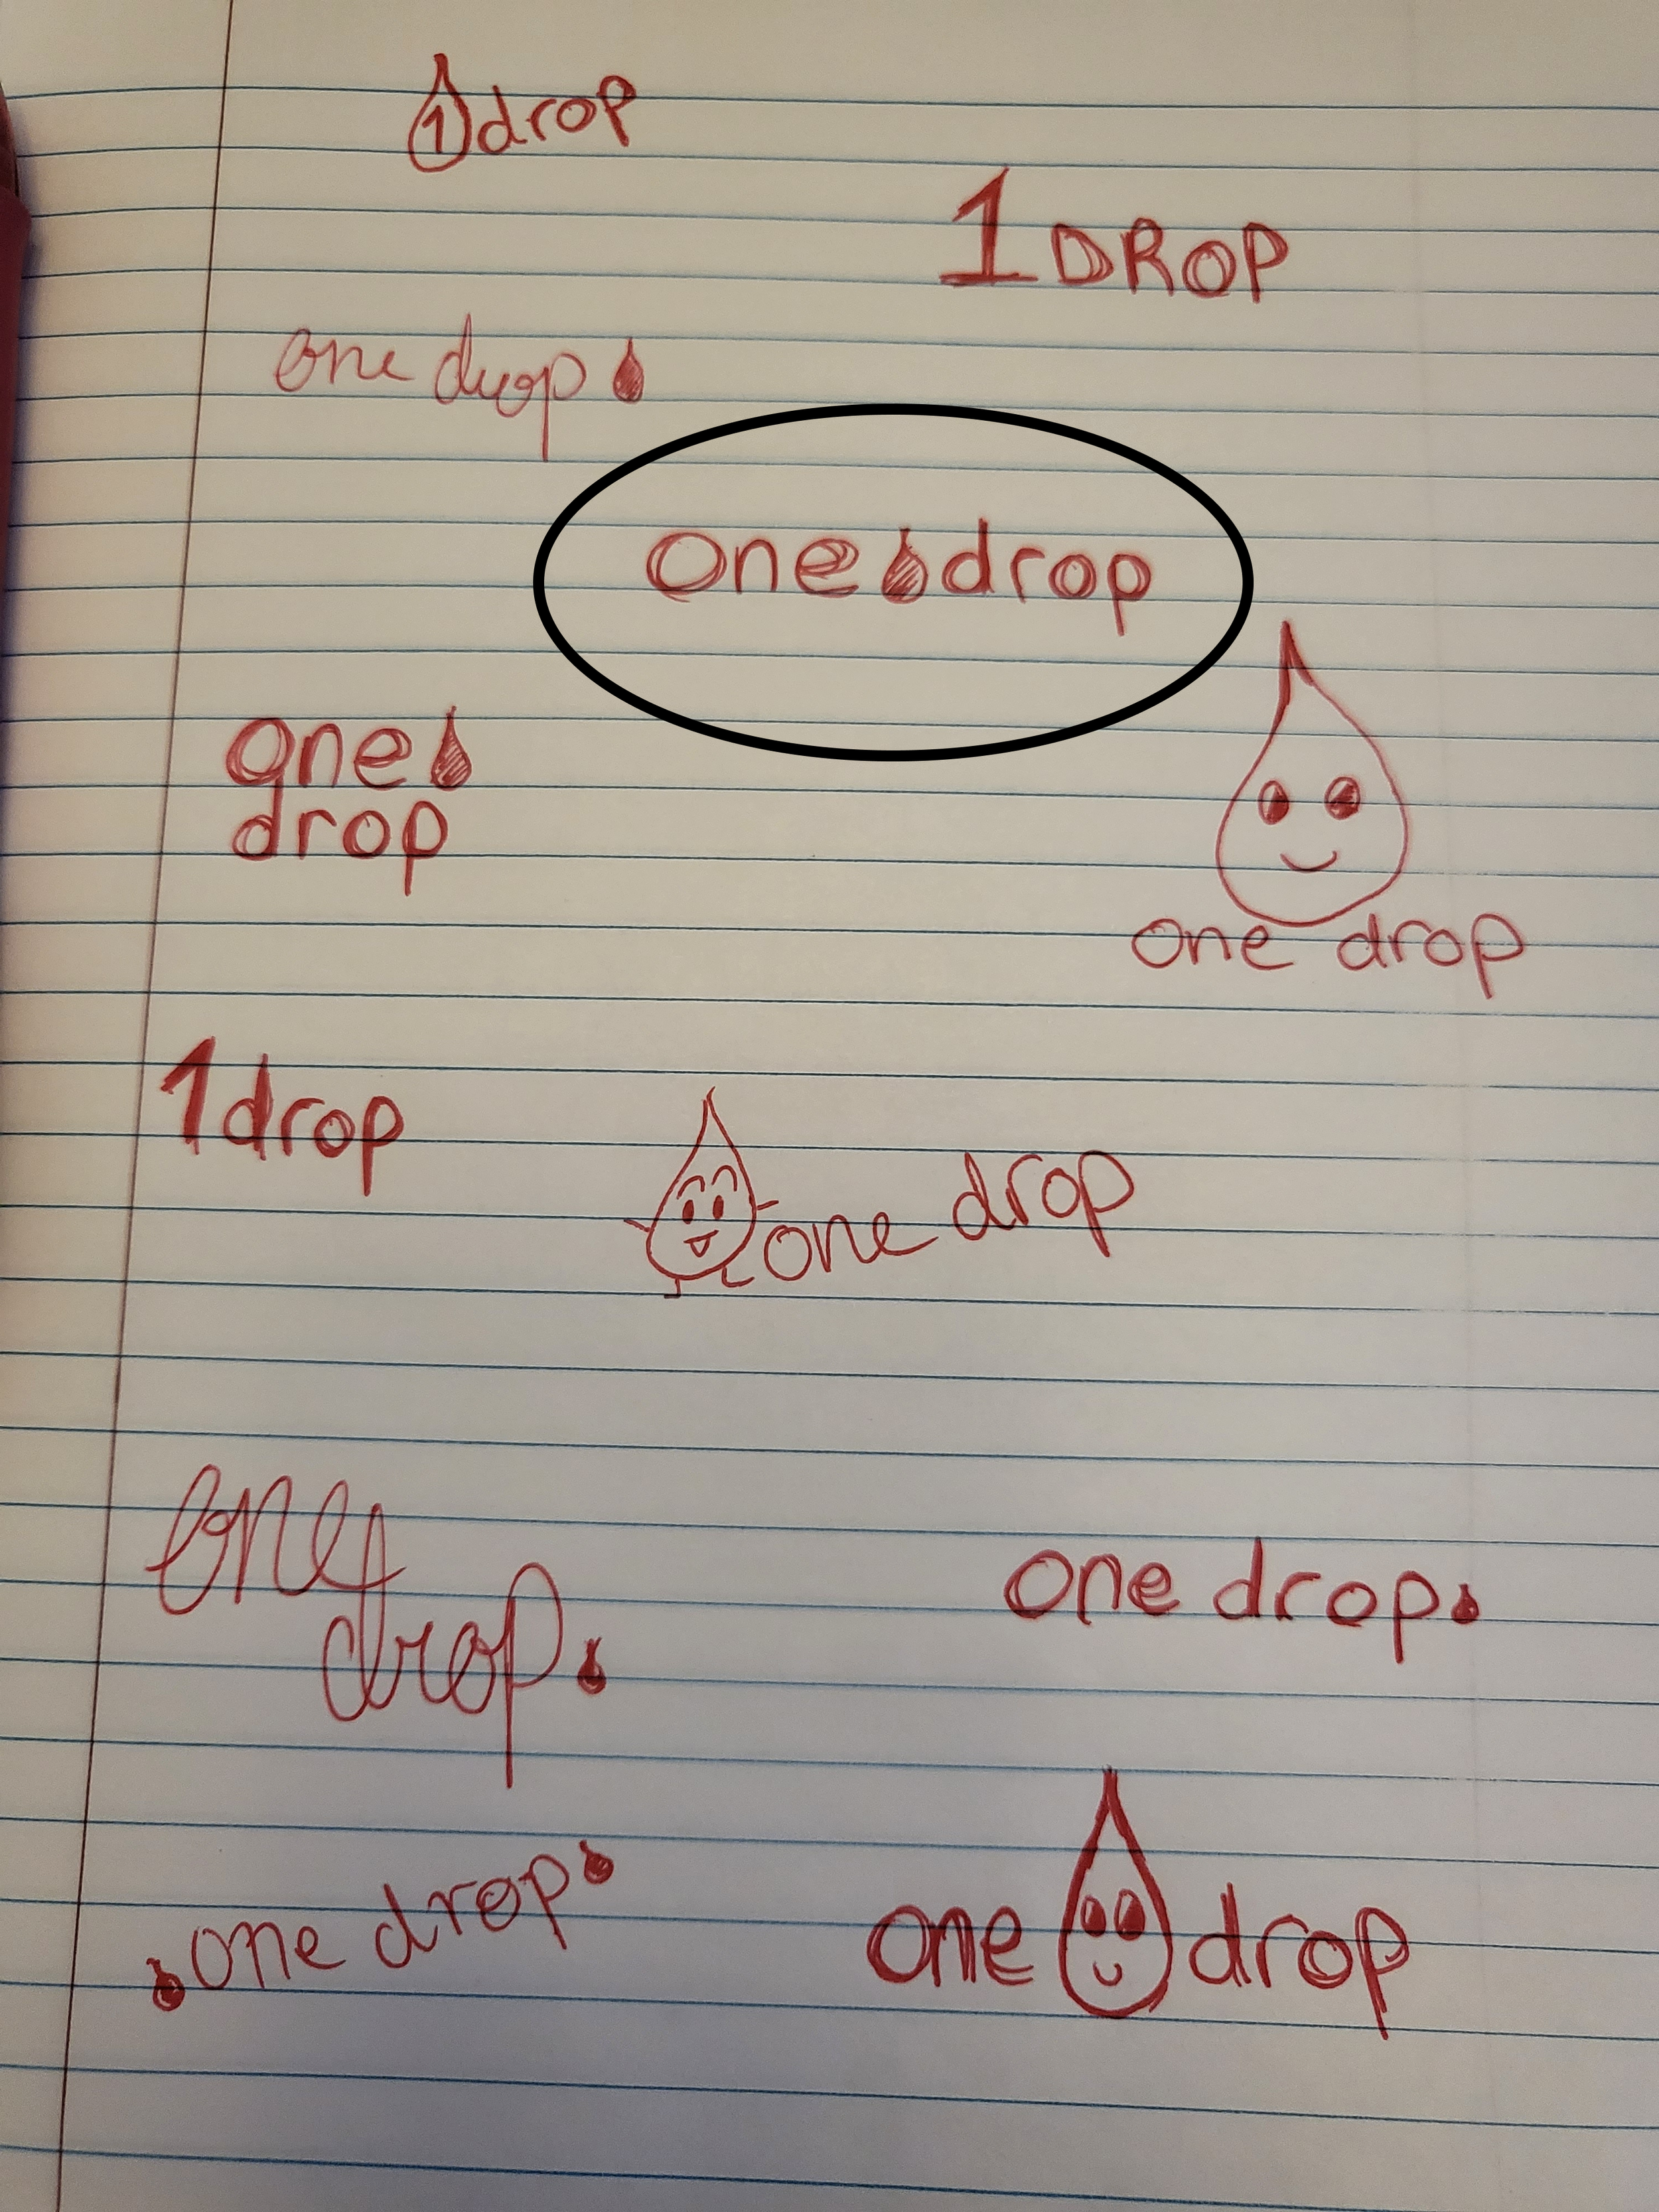 1 drop
1 DROP
one drop
one drop
one
drop
one drop
1 drop
one drop
one
drop
one drop
one drop
one drop